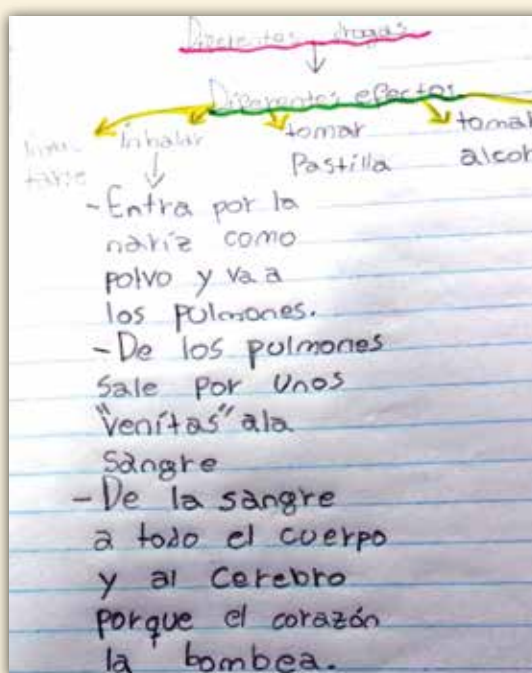 Diferentes drogas
Diferentes efectos
inhalar tomar tomar
Pastilla
-Entra por la
nariz como
polvo y va a
los pulmones.
-De los pulmones
sale por unos
"venitas" ala
sangre
-De la sangre
a todo el cuerpo
y al cerebro
porque el corazón
la bombea.